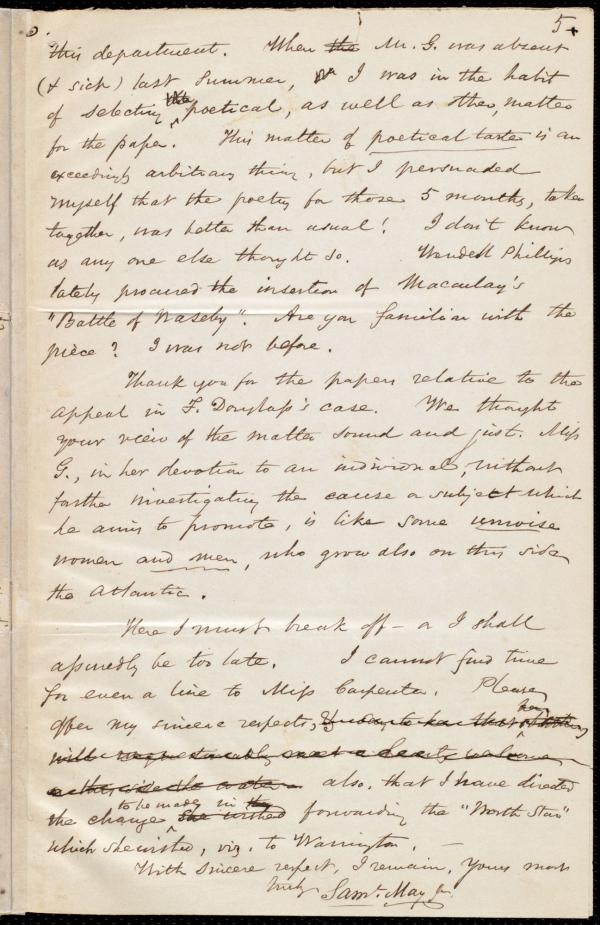 5
this department. When the Mr. G. was absent
(& sick) last Summer, I was in the habit
of selecting the poetical, as well as other, matter
for the paper. This matter of poetical taste is an
exceedingly arbitrary thing, but I persuaded
myself that the poetry for those 5 months, taken
together, was better than usual! I don't know
as any one else thought so. Wendell Phillips
lately procured the insertion of Macaulay's
"Battle of Naseby". Are you familiar with the
piece? I was not before.
Thank you for the papers relative to the
appeal in F. Douglass's case. We thought
your view of the matter sound and just. Miss
G., in her devotion to an individual, without
farther investigating the cause or subject which
he aims to promote, is like some unwise
women and men, who grow also on this side
the Atlantic.
Here I must break off – or I shall
assuredly be too late. I cannot find time
for even a line to Miss Carpenter. Please
offer my sincere respects,
will unquestionably meet a hearty welcome
also, that I have directed
to be made, in the
the change she wished forwarding the "North Star"
which she wished, viz. to Warrington. —
With sincere respect, I remain, Yours most
truly Saml. May Jr.